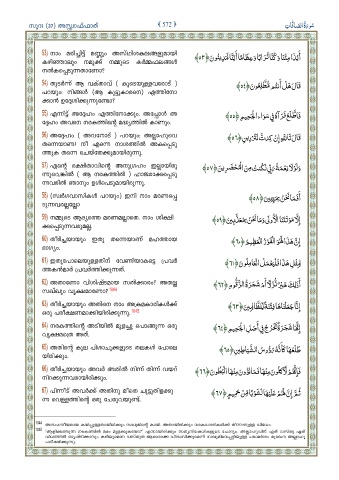 سُورَةُ الصَّافَّاتِ
{ 572 }
സൂറ (37) അസ്സ്വാഫ്ഫാത്ത്
53) നാം മരിച്ചിട്ട് മണ്ണും അസ്ഥിശകലങ്ങളുമായി
കഴിഞ്ഞാലും നമുക്ക് നമ്മുടെ കർമ്മഫലങ്ങൾ
നൽകപ്പെടുന്നതാണോ?
أَءِذَا مِتْنَا وَكُنَّا تُرَابًا وَعِظَامًا أَءِنَّا لَمَدِينُونَ ﴿٥٣﴾
54) തുടർന്ന് ആ വക്താവ് (കൂടെയുള്ളവരോട്)
പറയും: നിങ്ങൾ (ആ കൂട്ടുകാരനെ) എത്തിനോ
ക്കാൻ ഉദ്ദേശിക്കുന്നുണ്ടോ?
قَالَ هَلْ أَنتُم مُّطَّلِعُونَ ﴿٥٤﴾
55) എന്നിട്ട് അദ്ദേഹം എത്തിനോക്കും. അപ്പോൾ അ
ദ്ദേഹം അവനെ നരകത്തിന്റെ മദ്ധ്യത്തിൽ കാണും.
فَاطَّلَعَ فَرَآهُ فِي سَوَاءِ الْجَحِيمِ ﴿٥٥﴾
56) അദ്ദേഹം (അവനോട്) പറയും: അല്ലാഹുവെ
തന്നെയാണ! നീ എന്നെ നാശത്തിൽ അകപ്പെടു
ത്തുക തന്നെ ചെയ്തേക്കുമായിരുന്നു.
قَالَ تَاللَّهِ إِن كِدتَّ لَتُرْدِينِ ﴿٥٦﴾
57) എന്റെ രക്ഷിതാവിന്റെ അനുഗ്രഹം ഇല്ലായിരു
ന്നുവെങ്കിൽ (ആ നരകത്തിൽ) ഹാജരാക്കപ്പെടു
ന്നവരിൽ ഞാനും ഉൾപ്പെടുമായിരുന്നു.
وَلَوْلَا نِعْمَةُ رَبِّي لَكُنتُ مِنَ الْمُحْضَرِينَ ﴿٥٧﴾
58) (സ്വർഗവാസികൾ പറയും:) ഇനി നാം മരണപ്പെ
ടുന്നവരല്ലല്ലോ
أَفَمَا نَحْنُ بِمَيِّتِينَ ﴿٥٨﴾
59) നമ്മുടെ ആദ്യത്തെ മരണമല്ലാതെ. നാം ശിക്ഷി
ക്കപ്പെടുന്നവരുമല്ല.
إِلَّا مَوْتَتَنَا الْأُولَىٰ وَمَا نَحْنُ بِمُعَذَّبِينَ ﴿٥٩﴾
60) തീർച്ചയായും ഇതു തന്നെയാണ് മഹത്തായ
ഭാഗ്യം.
إِنَّ هَٰذَا لَهُوَ الْفَوْزُ الْعَظِيمُ ﴿٦٠﴾
61) ഇതുപോലെയുള്ളതിന് വേണ്ടിയാകട്ടെ പ്രവർ
ത്തകൻമാർ പ്രവർത്തിക്കുന്നത്.
لِمِثْلِ هَٰذَا فَلْيَعْمَلِ الْعَامِلُونَ ﴿٦١﴾
62) അതാണോ വിശിഷ്ടമായ സൽക്കാരം? അതല്ല
സഖ്ഖൂം വൃക്ഷമാണോ?
أَذَٰلِكَ خَيْرٌ نُّزُلًا أَمْ شَجَرَةُ الزَّقُّومِ ﴿٦٢﴾
63) തീർച്ചയായും അതിനെ നാം അക്രമകാരികൾക്ക്
ഒരു പരീക്ഷണമാക്കിയിരിക്കുന്നു.
إِنَّا جَعَلْنَاهَا فِتْنَةً لِّلظَّالِمِينَ ﴿٦٣﴾
64) നരകത്തിന്റെ അടിയിൽ മുളച്ചു പൊങ്ങുന്ന ഒരു
വൃക്ഷമത്രെ അത്.
إِنَّهَا شَجَرَةٌ تَخْرُجُ فِي أَصْلِ الْجَحِيمِ ﴿٦٤﴾
65) അതിന്റെ കുല പിശാചുക്കളുടെ തലകൾ പോലെ
യിരിക്കും.
طَلْعُهَا كَأَنَّهُ رُءُوسُ الشَّيَاطِينِ ﴿٦٥﴾
66) തീർച്ചയായും അവർ അതിൽ നിന്ന് തിന്ന് വയറ്
നിറക്കുന്നവരായിരിക്കും.
فَإِنَّهُمْ لَآكِلُونَ مِنْهَا فَمَالِئُونَ مِنْهَا الْبُطُونَ ﴿٦٦﴾
67) പിന്നീട് അവർക്ക് അതിനു മീതെ ചുട്ടുതിളക്കു
ന്ന വെള്ളത്തിന്റെ ഒരു ചേരുവയുണ്ട്.
ثُمَّ إِنَّ لَهُمْ عَلَيْهَا لَشَوْبًا مِّنْ حَمِيمٍ ﴿٦٧﴾